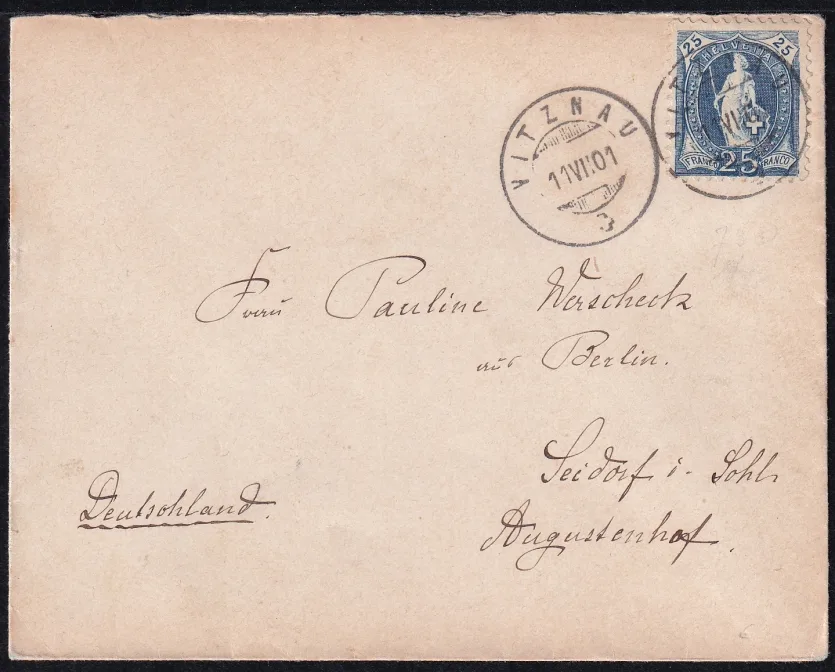 25 HELVETIA 25
FRANCO 25 FRANCO
VITZNAU
11 VII 01
3
Frau Pauline Werscheck
aus Berlin.
Seidorf i. Schl.
Augustenhof.
Deutschland.